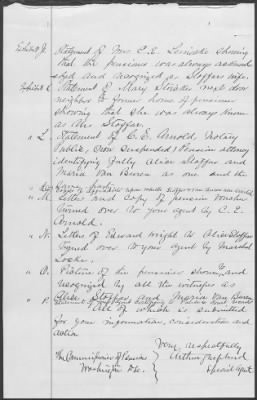 Exhibit J. Statement of Mrs. C. E. showing
that the pensioner was always acknowl
edged and recognized as Stoffers wife.
Exhibit K Statement of Mary next door
neighbor to former home of pensioner
showing that she was always known
as Mrs Stoffer.
" L. Statement of C. E. Arnold, Notary
Public, & now suspended Pension attorney
identifying Sally alias Stoffer and
Maria Van Buren as one and the
same
" M. Letter and copy of pension voucher
turned over to your agent by C. E.
Arnold.
" N. Letters of Edward Wright to Alice Stoffer
turned over to your agent by Marshal
Locke.
" O. Picture of the pensioner shown to, and
recognized by all the witnesses as
Alice Stoffer and Maria Van Buren
" P.
All of which is submitted
for your information, consideration and
action
Very respectfully
The Commissioner of Pensions
Washington D.C.
Arthur
Special Agent.